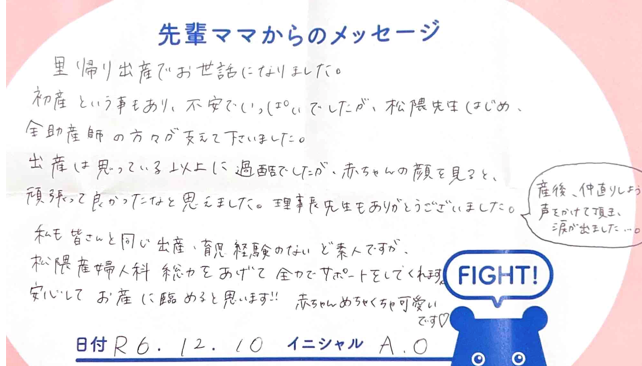 先輩ママからのメッセージ
里帰り出産でお世話になりました。
初産という事もあり、不安でいっぱいでしたが、松隈先生はじめ、
全助産師の方々が支えて下さいました。
出産は思っている以上に過酷でしたが、赤ちゃんの顔を見ると、
頑張って良かったなと思えました。理事長先生もありがとうございました。
産後、仲直りしよう
声をかけて頂き、
涙が出ました…。
私も皆さんと同じ出産、育児経験のないど素人ですが、
松隈産婦人科 総力をあげて全力でサポートをしてくれます。
安心してお産に臨めると思います!! 赤ちゃんめちゃくちゃ可愛い
です♡
FIGHT!
日付 R6.12.10 イニシャル A.O